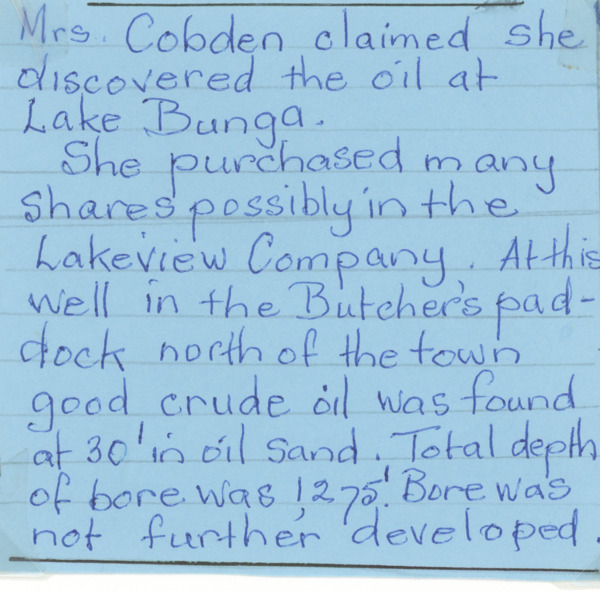 Mrs. Cobden claimed she
discovered the oil at
Lake Bunga.
She purchased many
shares possibly in the
Lakeview Company. At this
well in the Butcher's pad-
dock north of the town
good crude oil was found
at 30' in oil sand. Total depth
of bore was 1,275'. Bore was
not further developed.